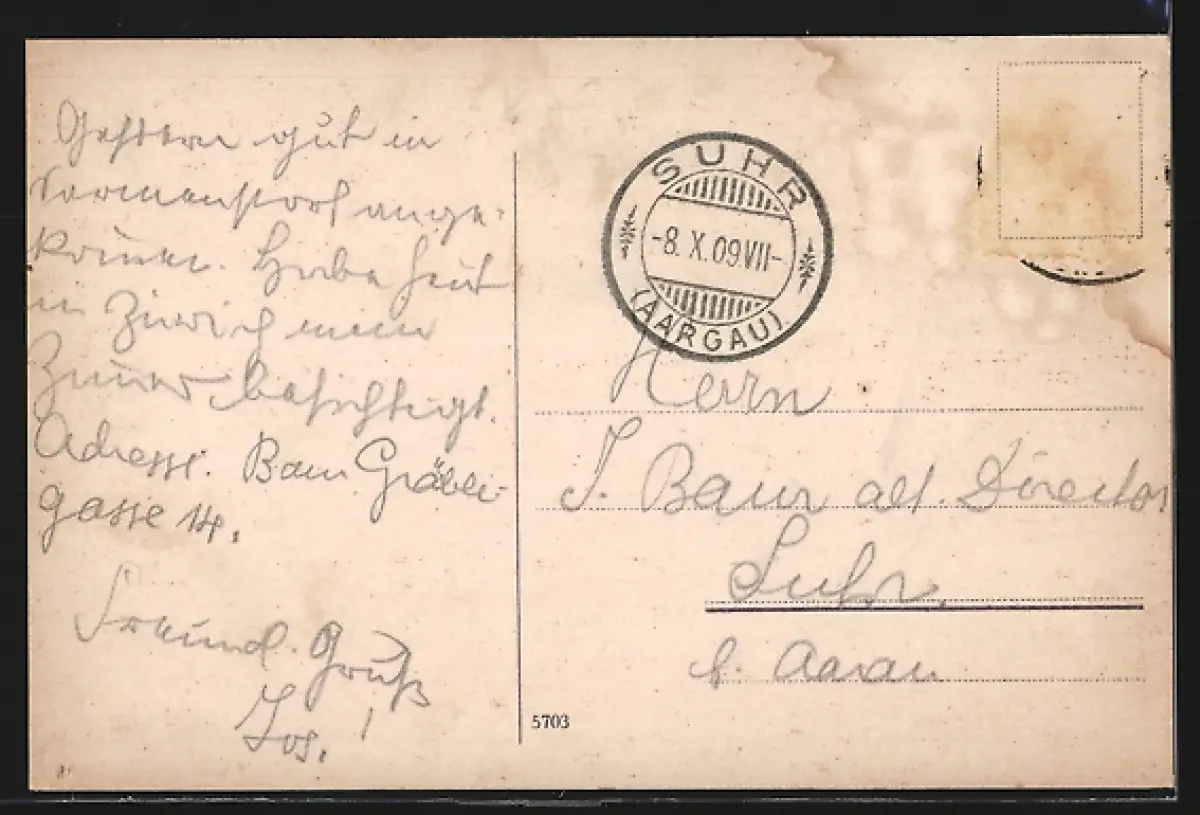 Gestern gut in
Sarmenstorf ange-
kom̄en. Habe heut
in Zürich mein
Zim̄er besichtigt.
Adresse. Baur Gräbli-
gasse 14.
Freundl. Gruß
Jos.!
SUHR
-8. X. 09. VII-
(AARGAU)
Herrn
J. Baur alt. Director
Suhr.
b. Aarau
5703